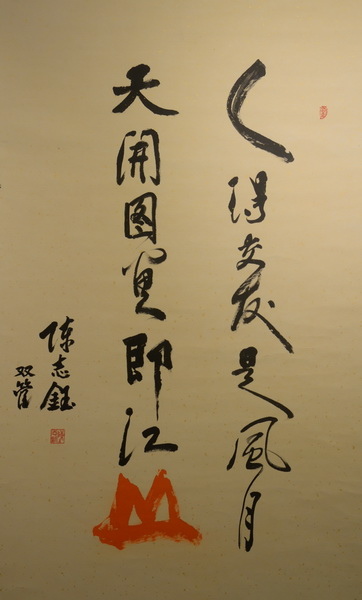 人得交友是風月
天開图画即江山
陈志鈺
双管